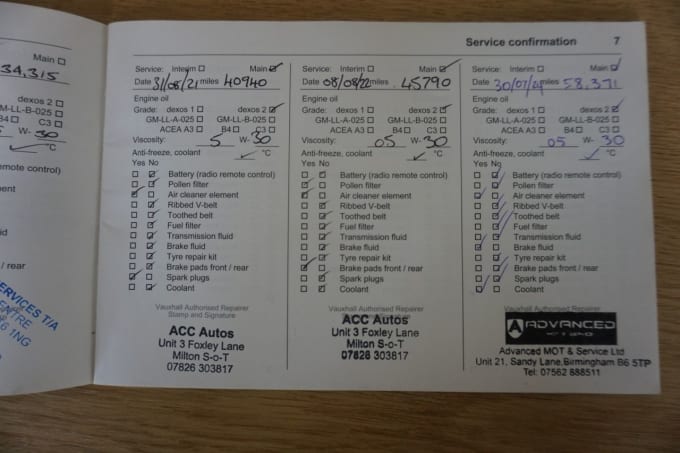 Main
34,315
dexos 2
M-LL-B-025
B4 C3
5 W- 30
°C
emote control)
ement
id
/ rear
ERVICES T/A
ENTRE
Service confirmation 7
Service: Interim Main
Date 31/08/21 miles 40940
Engine oil
Grade: dexos 1 dexos 2
GM-LL-A-025 GM-LL-B-025
ACEA A3 B4 C3
Viscosity: 5 W- 30
Anti-freeze, coolant °C
Yes No
Battery (radio remote control)
Pollen filter
Air cleaner element
Ribbed V-belt
Toothed belt
Fuel filter
Transmission fluid
Brake fluid
Tyre repair kit
Brake pads front / rear
Spark plugs
Coolant
Vauxhall Authorised Repairer
Stamp and Signature
ACC Autos
Unit 3 Foxley Lane
Milton S-o-T
07826 303817
Service: Interim Main
Date 08/08/22 miles 45790
Engine oil
Grade: dexos 1 dexos 2
GM-LL-A-025 GM-LL-B-025
ACEA A3 B4 C3
Viscosity: 05 W- 30
Anti-freeze, coolant °C
Yes No
Battery (radio remote control)
Pollen filter
Air cleaner element
Ribbed V-belt
Toothed belt
Fuel filter
Transmission fluid
Brake fluid
Tyre repair kit
Brake pads front / rear
Spark plugs
Coolant
Vauxhall Authorised Repairer
ACC Autos
Unit 3 Foxley Lane
Milton S-o-T
07826 303817
Service: Interim Main
Date miles 58,371
Engine oil
Grade: dexos 1 dexos 2
GM-LL-A-025 GM-LL-B-025
ACEA A3 B4 C3
Viscosity: 05 W- 30
Anti-freeze, coolant °C
Yes No
Battery (radio remote control)
Pollen filter
Air cleaner element
Ribbed V-belt
Toothed belt
Fuel filter
Transmission fluid
Brake fluid
Tyre repair kit
Brake pads front / rear
Spark plugs
Coolant
Vauxhall Authorised Repairer
ADVANCED
MOT & SERVICE
Advanced MOT & Service Ltd
Unit 21, Sandy Lane, Birmingham B6 5TP
Tel: 07562 888511